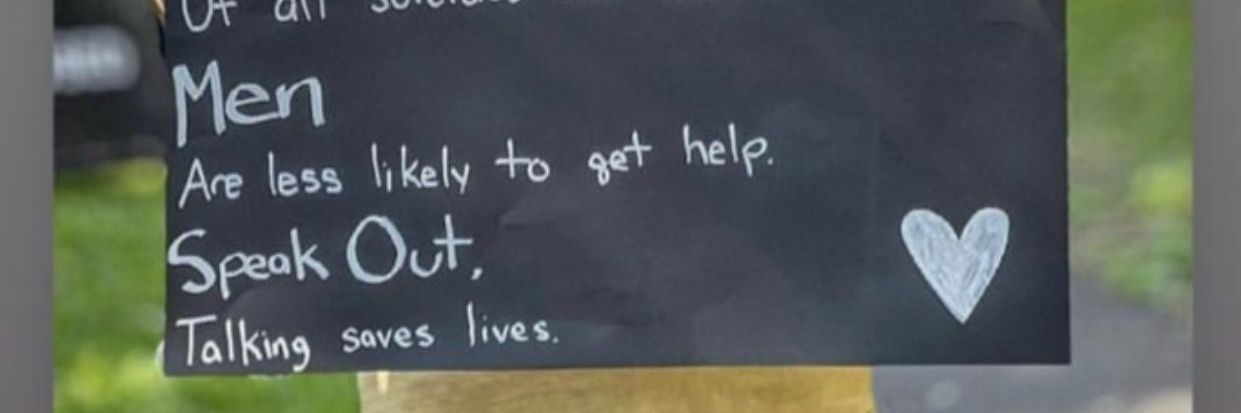 Of all
Men
Are less likely to get help.
Speak Out,
Talking saves lives.